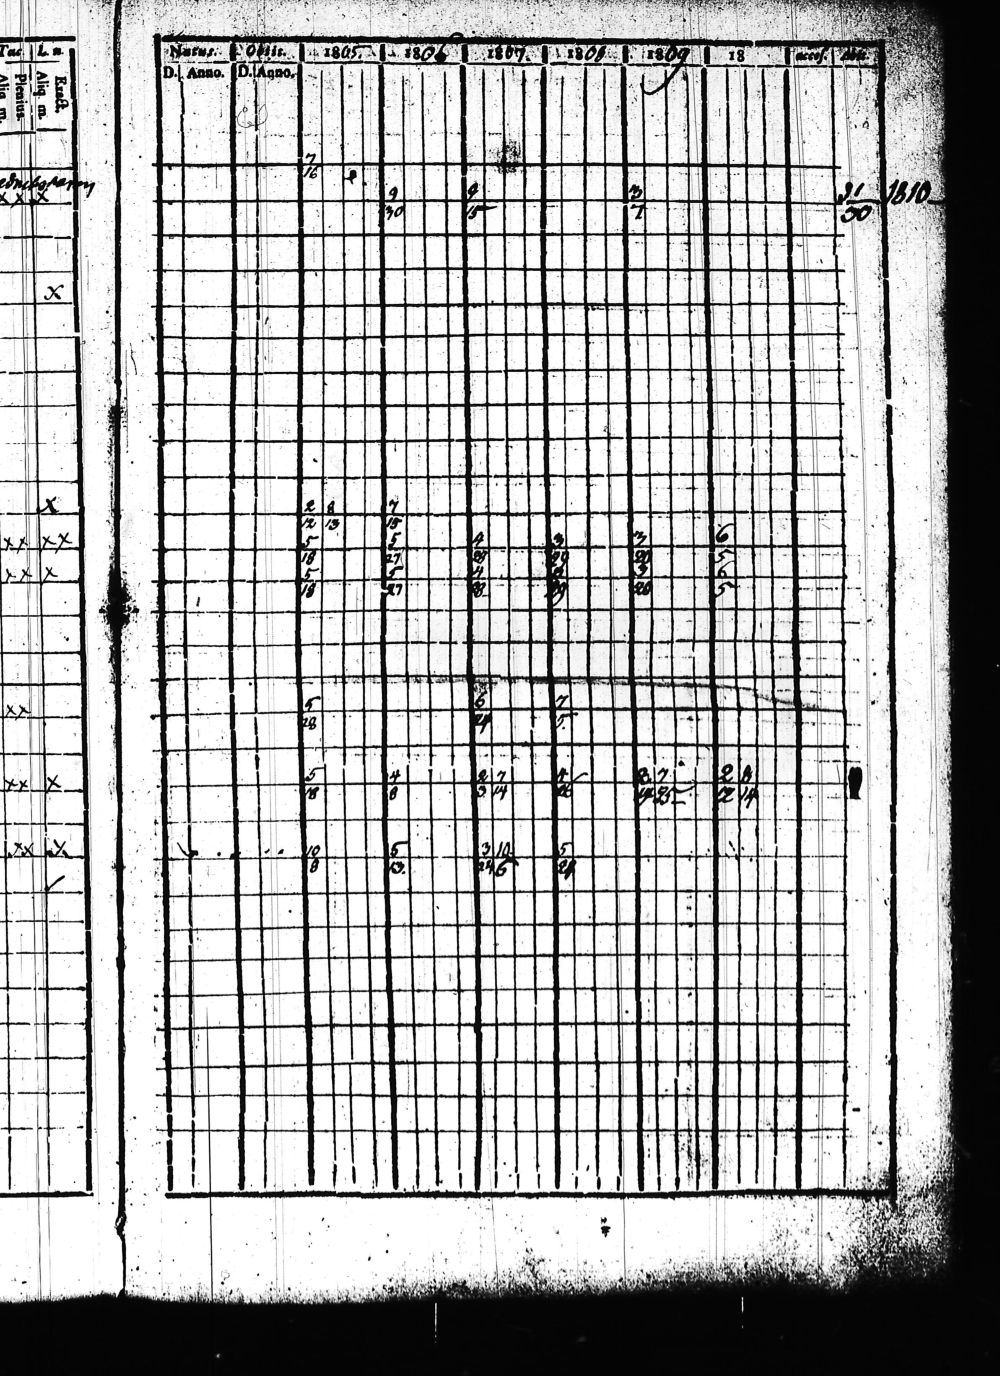 L. n. Natus. Obiit. 1805. 1806 1807. 1808 1809 18 accef. Abit.
Exact. Aliq. m. Plenius. Aliq. m. D. Anno. D. Anno.
7
16
x x x 9 9 3 21 1810
30 15 7 30
x
x 2 8 7
12 13 15
xx xx 5 5 4 3 3 6
18 27 28 29 20 5
xx x 5 5 4 3 6
18 27 28 29 20 5
xx 5 6 7
28 24 5
xx x 5 4 2 7 4 8 7 2 8
18 8 3 14 26 19 25 12 14
xx x 10 5 3 10 5
8 13 24 6 24